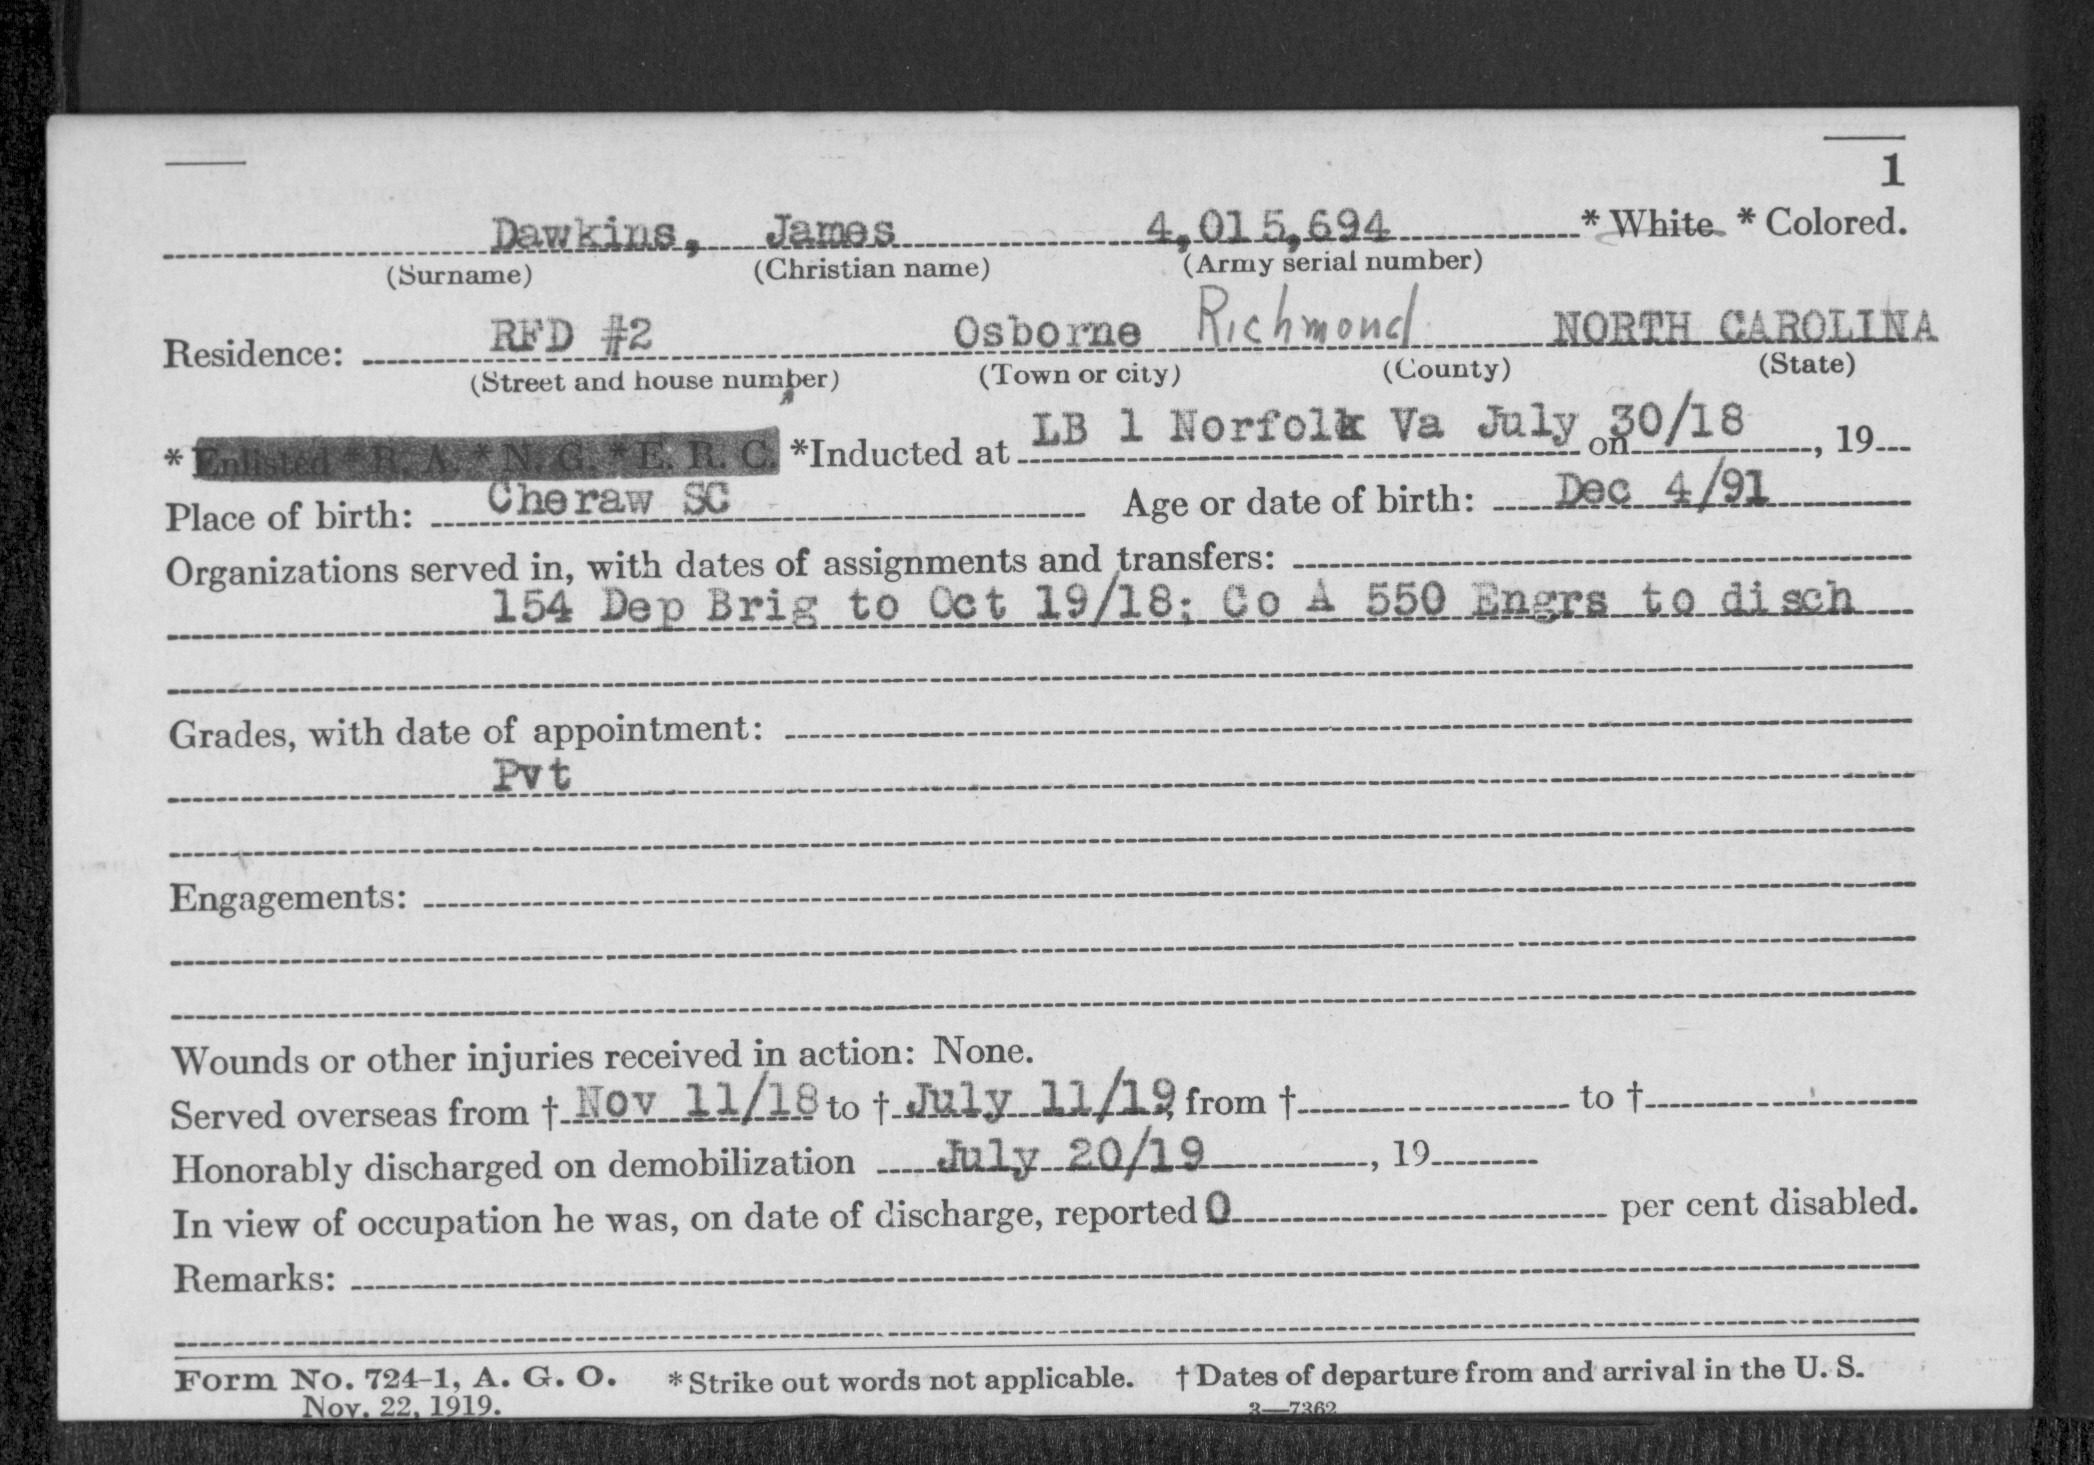 1
Dawkins, James 4,015,694 * White * Colored.
(Surname) (Christian name) (Army serial number)
Residence: RFD #2 Osborne Richmond NORTH CAROLINA
(Street and house number) (Town or city) (County) (State)
* Enlisted * R. A. * N. G. * E. R. C. *Inducted at LB 1 Norfolk Va July 30/18 on , 19
Place of birth: Cheraw SC Age or date of birth: Dec 4/91
Organizations served in, with dates of assignments and transfers:
154 Dep Brig to Oct 19/18; Co A 550 Engrs to disch
Grades, with date of appointment:
Pvt
Engagements:
Wounds or other injuries received in action: None.
Served overseas from † Nov 11/18 to † July 11/19, from † to †
Honorably discharged on demobilization July 20/19 , 19
In view of occupation he was, on date of discharge, reported 0 per cent disabled.
Remarks:
Form No. 724-1, A. G. O. * Strike out words not applicable. † Dates of departure from and arrival in the U. S.
Nov. 22, 1919. 3—7362